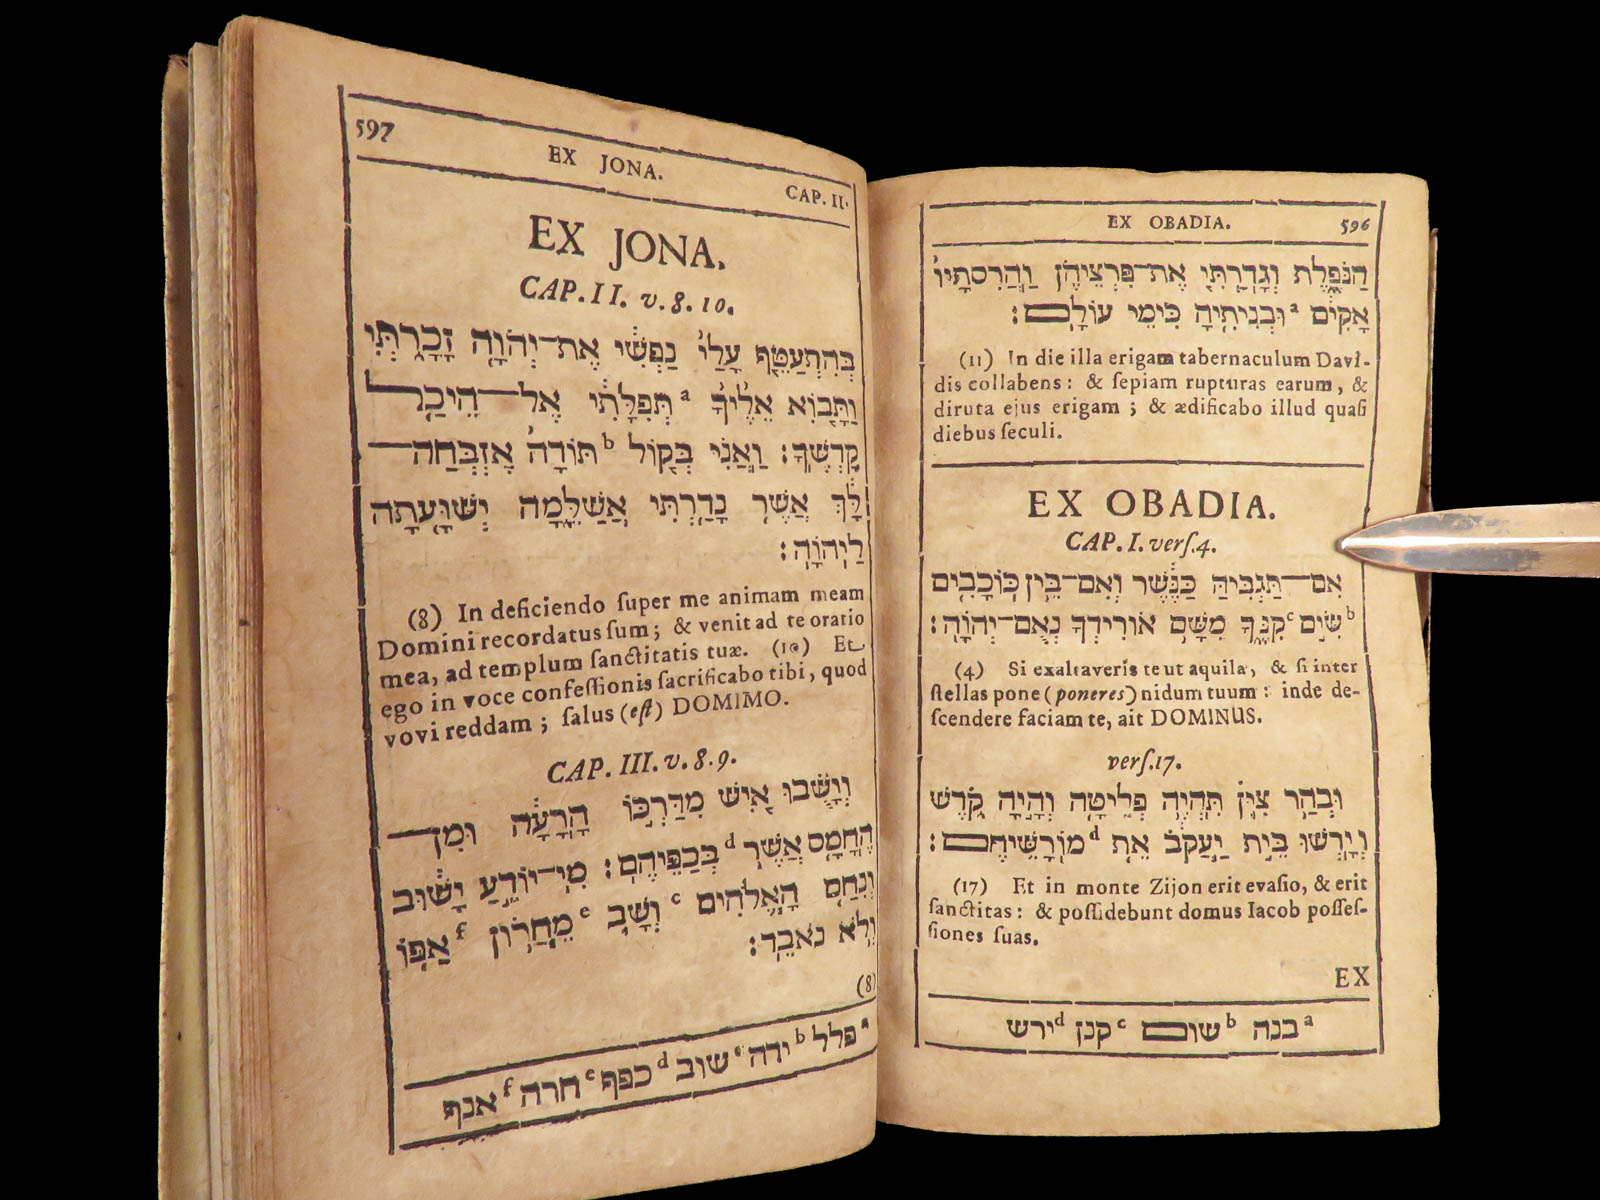 EX OBADIA. 596
הַנֹּפֶלֶת וְגָדַרְתִּי אֶת־פִּרְצֵיהֶן וַהֲרִסֹתָיו
אָקִים ᵃ וּבְנִיתִיהָ כִּימֵי עוֹלָם׃
(11) In die illa erigam tabernaculum Davi-
dis collabens: & ſepiam rupturas earum, &
diruta ejus erigam; & ædificabo illud quaſi
diebus ſeculi.
EX OBADIA.
CAP. I. verſ.4.
אִם־תַּגְבִּיהַּ כַּנֶּשֶׁר וְאִם־בֵּין כּוֹכָבִים
ᵇ שִׂים ᶜ קִנֶּךָ מִשָּׁם אוֹרִידְךָ נְאֻם־יְהוָה׃
(4) Si exaltaveris te ut aquila, & ſi inter
ſtellas pone (poneres) nidum tuum: inde de-
ſcendere faciam te, ait DOMINUS.
verſ.17.
וּבְהַר צִיּוֹן תִּהְיֶה פְלֵיטָה וְהָיָה קֹדֶשׁ
וְיָרְשׁוּ בֵּית יַעֲקֹב אֵת ᵈ מוֹרָשֵׁיהֶם׃
(17) Et in monte Zijon erit evaſio, & erit
ſanctitas: & poſſidebunt domus Iacob poſſeſ-
ſiones ſuas.
EX
ᵃ בנה ᵇ שום ᶜ קנן ᵈ ירש
597 EX JONA. CAP. II.
EX JONA.
CAP. II. v. 8. 10.
בְּהִתְעַטֵּף עָלַי נַפְשִׁי אֶת־יְהוָה זָכָרְתִּי
וַתָּבוֹא אֵלֶיךָ ᵃ תְּפִלָּתִי אֶל־הֵיכַל
קָדְשֶׁךָ׃ וַאֲנִי בְּקוֹל ᵇ תּוֹדָה אֶזְבְּחָה־
לָּךְ אֲשֶׁר נָדַרְתִּי אֲשַׁלֵּמָה יְשׁוּעָתָה
לַיהוָה׃
(8) In deficiendo ſuper me animam meam
Domini recordatus ſum; & venit ad te oratio
mea, ad templum ſanctitatis tuæ. (10) Et
ego in voce confeſſionis ſacrificabo tibi, quod
vovi reddam; ſalus (eſt) DOMIMO.
CAP. III. v. 8. 9.
וְיָשֻׁבוּ אִישׁ מִדַּרְכּוֹ הָרָעָה וּמִן־
הֶחָמָס אֲשֶׁר ᵈ בְּכַפֵּיהֶם׃ מִי־יוֹדֵעַ יָשׁוּב
וְנִחַם הָאֱלֹהִים ᶜ וְשָׁב ᵉ מֵחֲרוֹן ᶠ אַפּוֹ
וְלֹא נֹאבֵד׃
(8)
ᵃ פלל ᵇ ידה ᶜ שוב ᵈ כפף ᵉ חרה ᶠ אנף